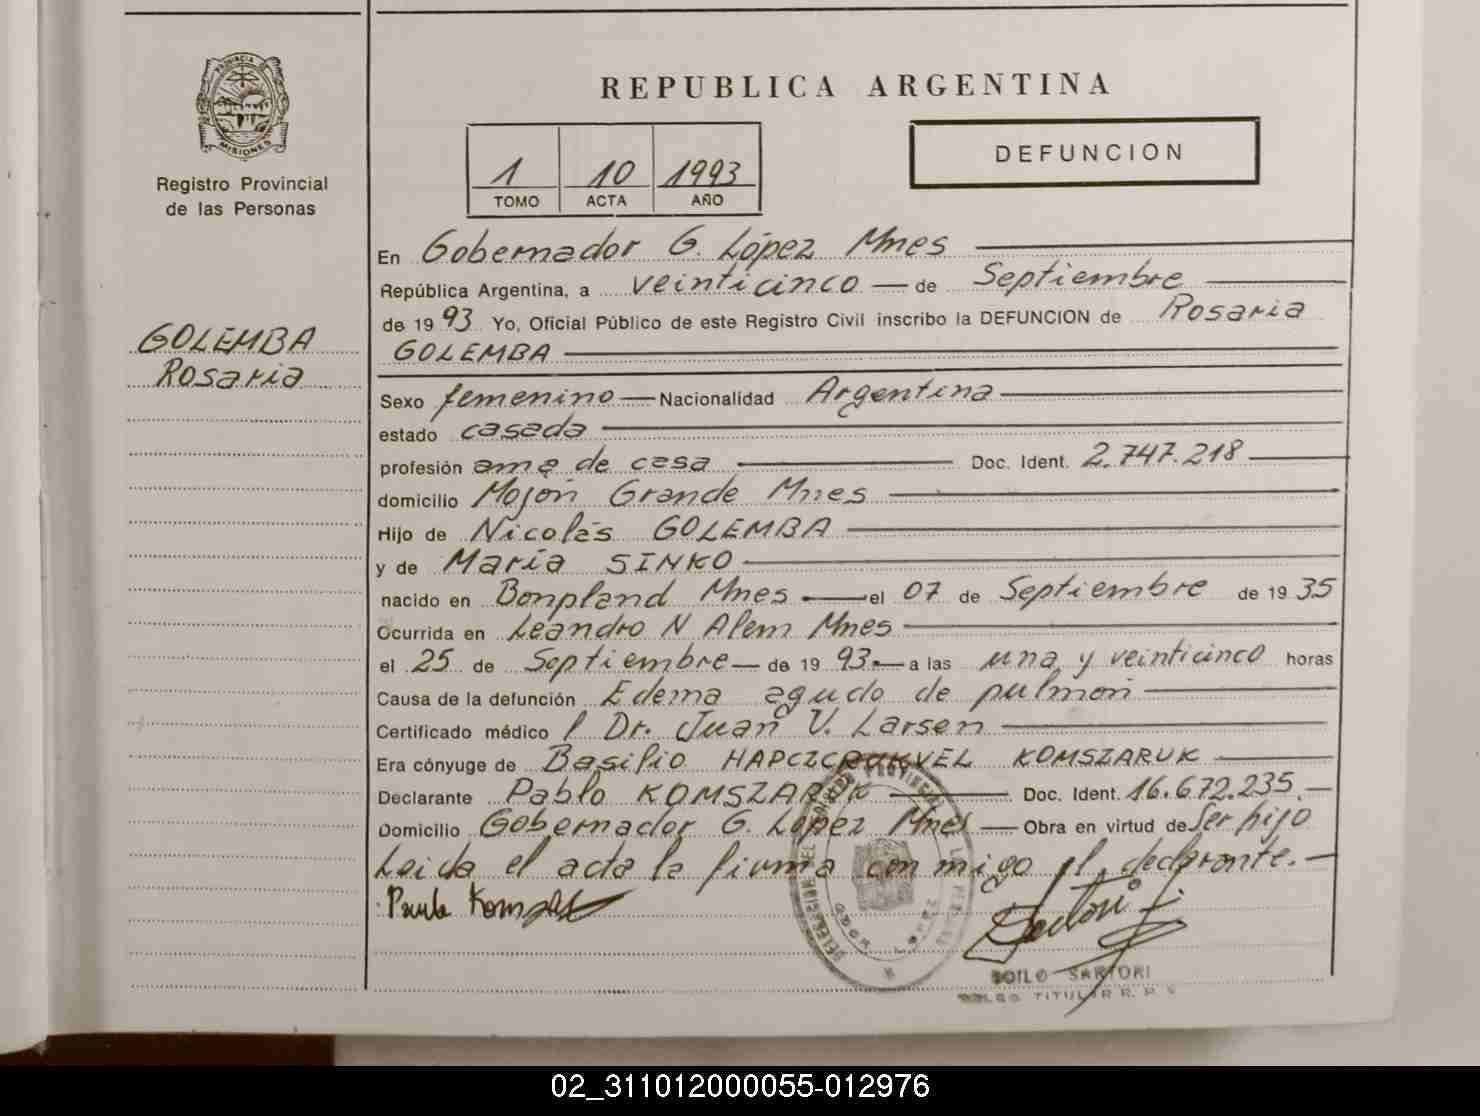 PROVINCIA DE
MISIONES
Registro Provincial
de las Personas
GOLEMBA
Rosaria
REPUBLICA ARGENTINA
1 10 1993
TOMO ACTA AÑO
DEFUNCION
En Gobernador G. López Mnes
República Argentina, a veinticinco de Septiembre
de 19 93 Yo, Oficial Público de este Registro Civil inscribo la DEFUNCION de Rosaria
GOLEMBA
Sexo femenino Nacionalidad Argentina
estado casada
profesión ama de casa Doc. Ident. 2.747.218
domicilio Mojón Grande Mnes
Hijo de Nicolás GOLEMBA
y de María SINKO
nacido en Bonpland Mnes el 07 de Septiembre de 19 35
Ocurrida en Leandro N Alem Mnes
el 25 de Septiembre de 19 93 a las una y veinticinco horas
Causa de la defunción Edema agudo de pulmón
Certificado médico Dr. Juan V. Larsen
Era cónyuge de Basilio KOMSZARUK
Declarante Pablo KOMSZARUK Doc. Ident. 16.672.235
Domicilio Gobernador G. López Mnes Obra en virtud de Ser hijo
Leida el acta la firma conmigo el declarante.
SARTORI
TITULAR R. P.
02_311012000055-012976